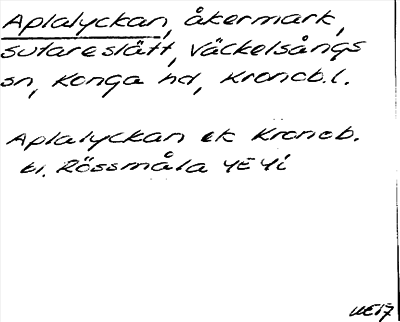 Aplalyckan, åkermark,
sutareslätt, Väckelsångs
sn, Konga hd, Kronob.l.
Aplalyckan ek Kronob.
bl. Rössmåla 4E4i